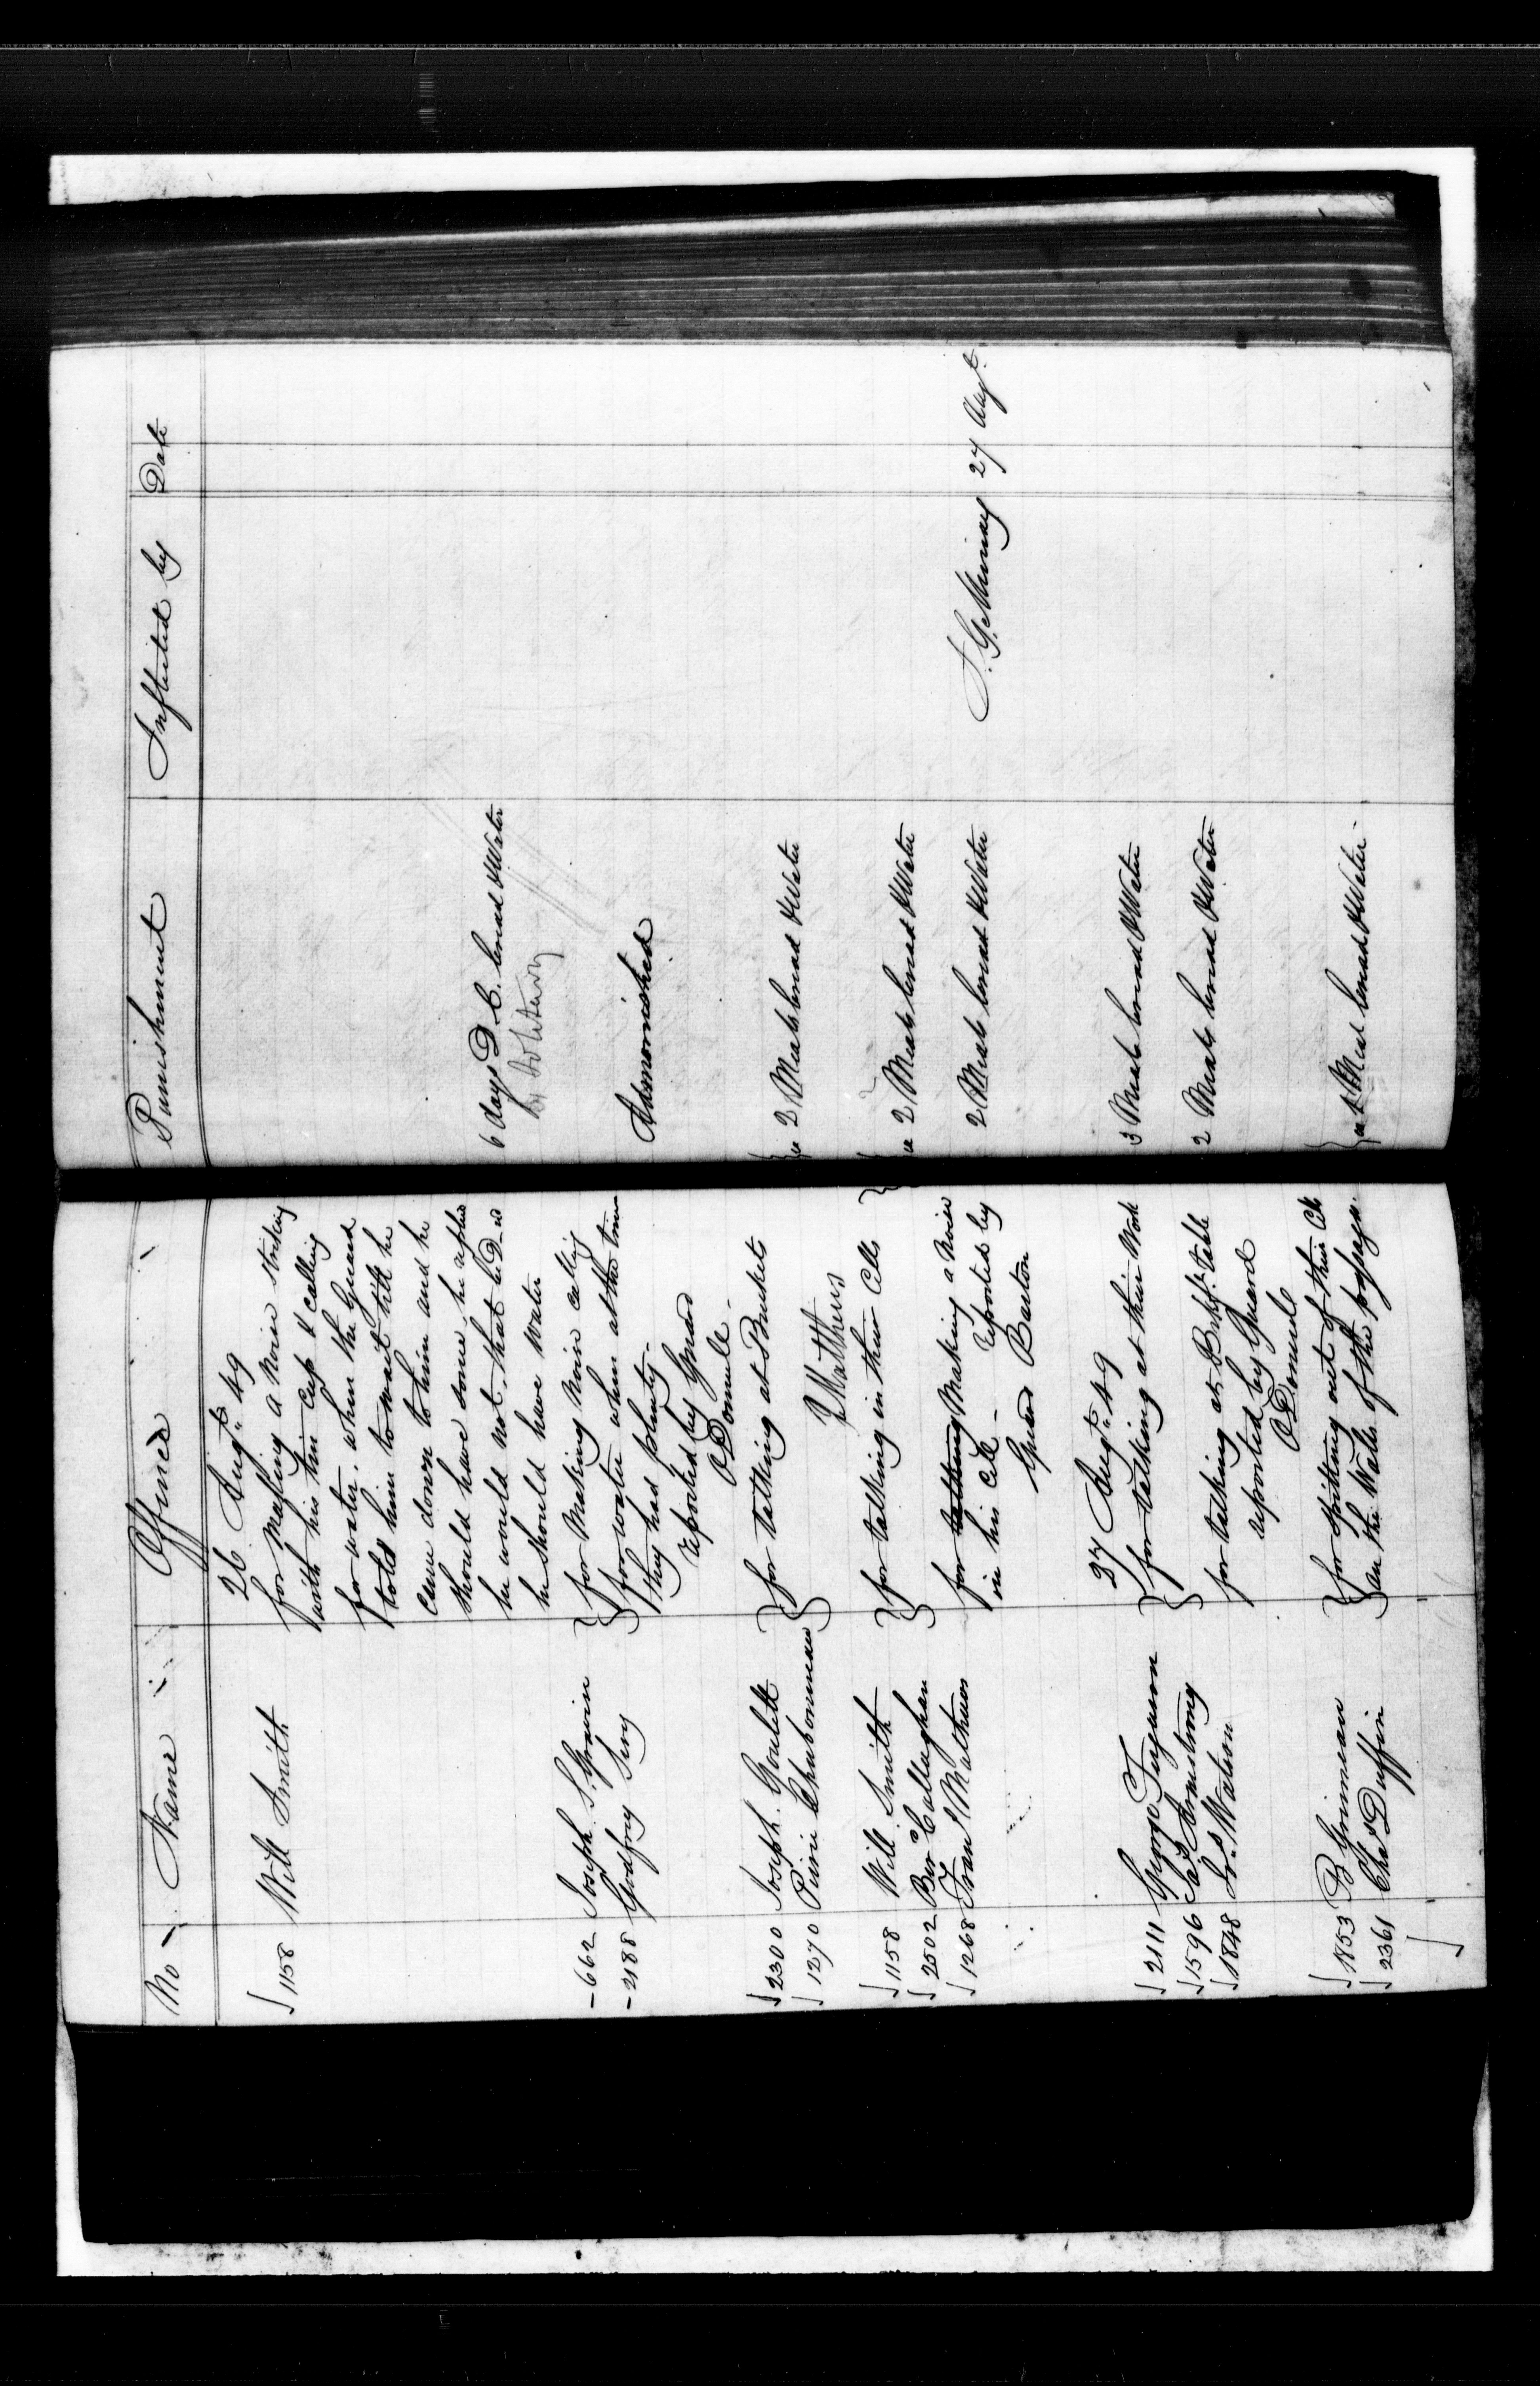 No Name Offence Punishment Inflicted by Date
26 Augt 49
1158 Will Smith for Making a Noise Striking
with his tin Cup & Calling
for water. when the Guard
told him to wait till he
came down to him and he
should have some, he replied
he would not, that by D—d 6 days D. C. bread & Water
he should have water
662 Joseph S. Gravin for Making Noise calling Admonished
2188 Godfrey Sery for water when at the time
they had plenty.
Reported by Guard
O'Donnell.
2300 Joseph Goulett for talking at Buckets 2 Meals bread & Water
1270 Pierre Charbonneau
J Matthews
1158 Will Smith for talking in their Cells 2 Meals bread & Water
2502 Ber Callaghan
1268 Frans Mathews for talking Making a Noise 2 Meals bread & Water
in his Cell - Reported by
Guard Barton
T. G. Mirray 27 Augt
27 Augt 49
2111 George Ferguson for talking at their Work 3 Meals bread & Water
1596 Jas Armstrong
1848 Jno Watson for talking at Bkft table 2 Meals bread & Water
reported by Guard
O'Donnell
1853 B Grinnean for Spitting out of their Cells
2361 Chas Duffin on the Walls of the passage. 1 Meal bread & Water